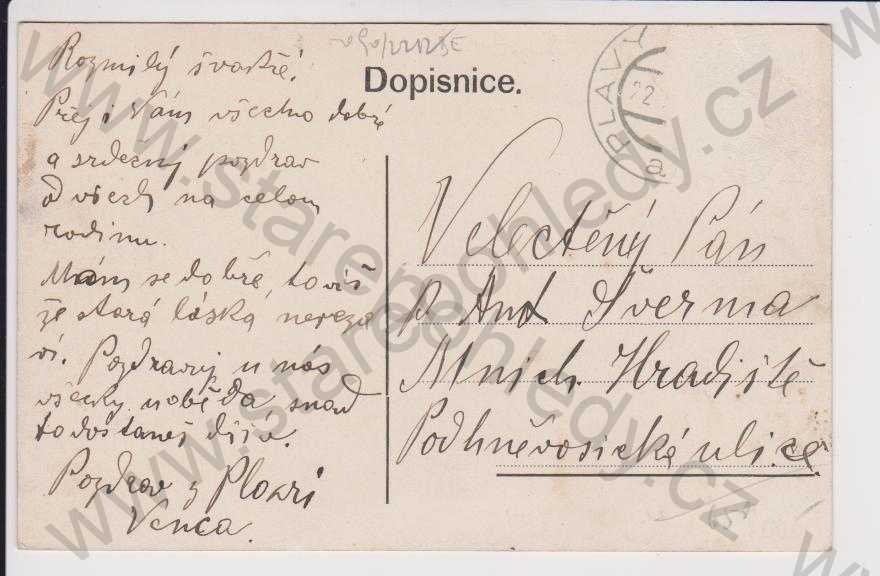 Rozmilý švakře!
Přej i Vám všechno dobré
a srdečný pozdrav
od všech na celom
rodinu.
Mám se dobře, to víš
že stará láska nereza
ví. Pozdravuj u nás
všecky
to dostaneš dřív.
Pozdrav z
Venca.
Dopisnice.
PLAVY
22
a
Velectěný Pán
P. Ant Šverma
Mnich. Hradiště
Podhněvosická ulice
www.starepohledy.cz